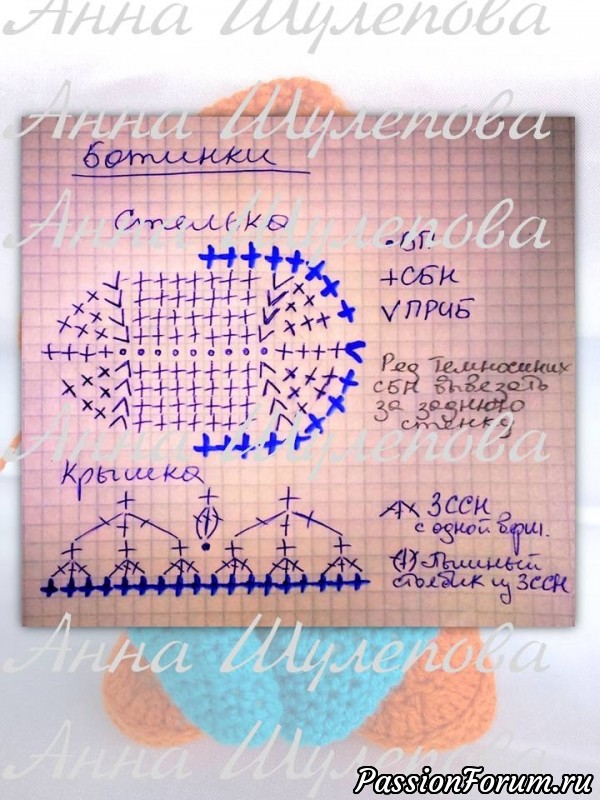 Анна Шулепова
Анна Шулепова
Ботинки
Стелька
Анна Шулепова
• ВП
+ СБН
V ПРИБ
Анна Шулепова
Ряд темносиних
СБН вывезать
за заднюю
стенку
Анна Шулепова
Крышка
3ССН
с одной верш.
Анна Шулепова
(+) Пышный
столбик из 3ССН
Анна Шулепова
Анна Шулепова
PassionForum.ru